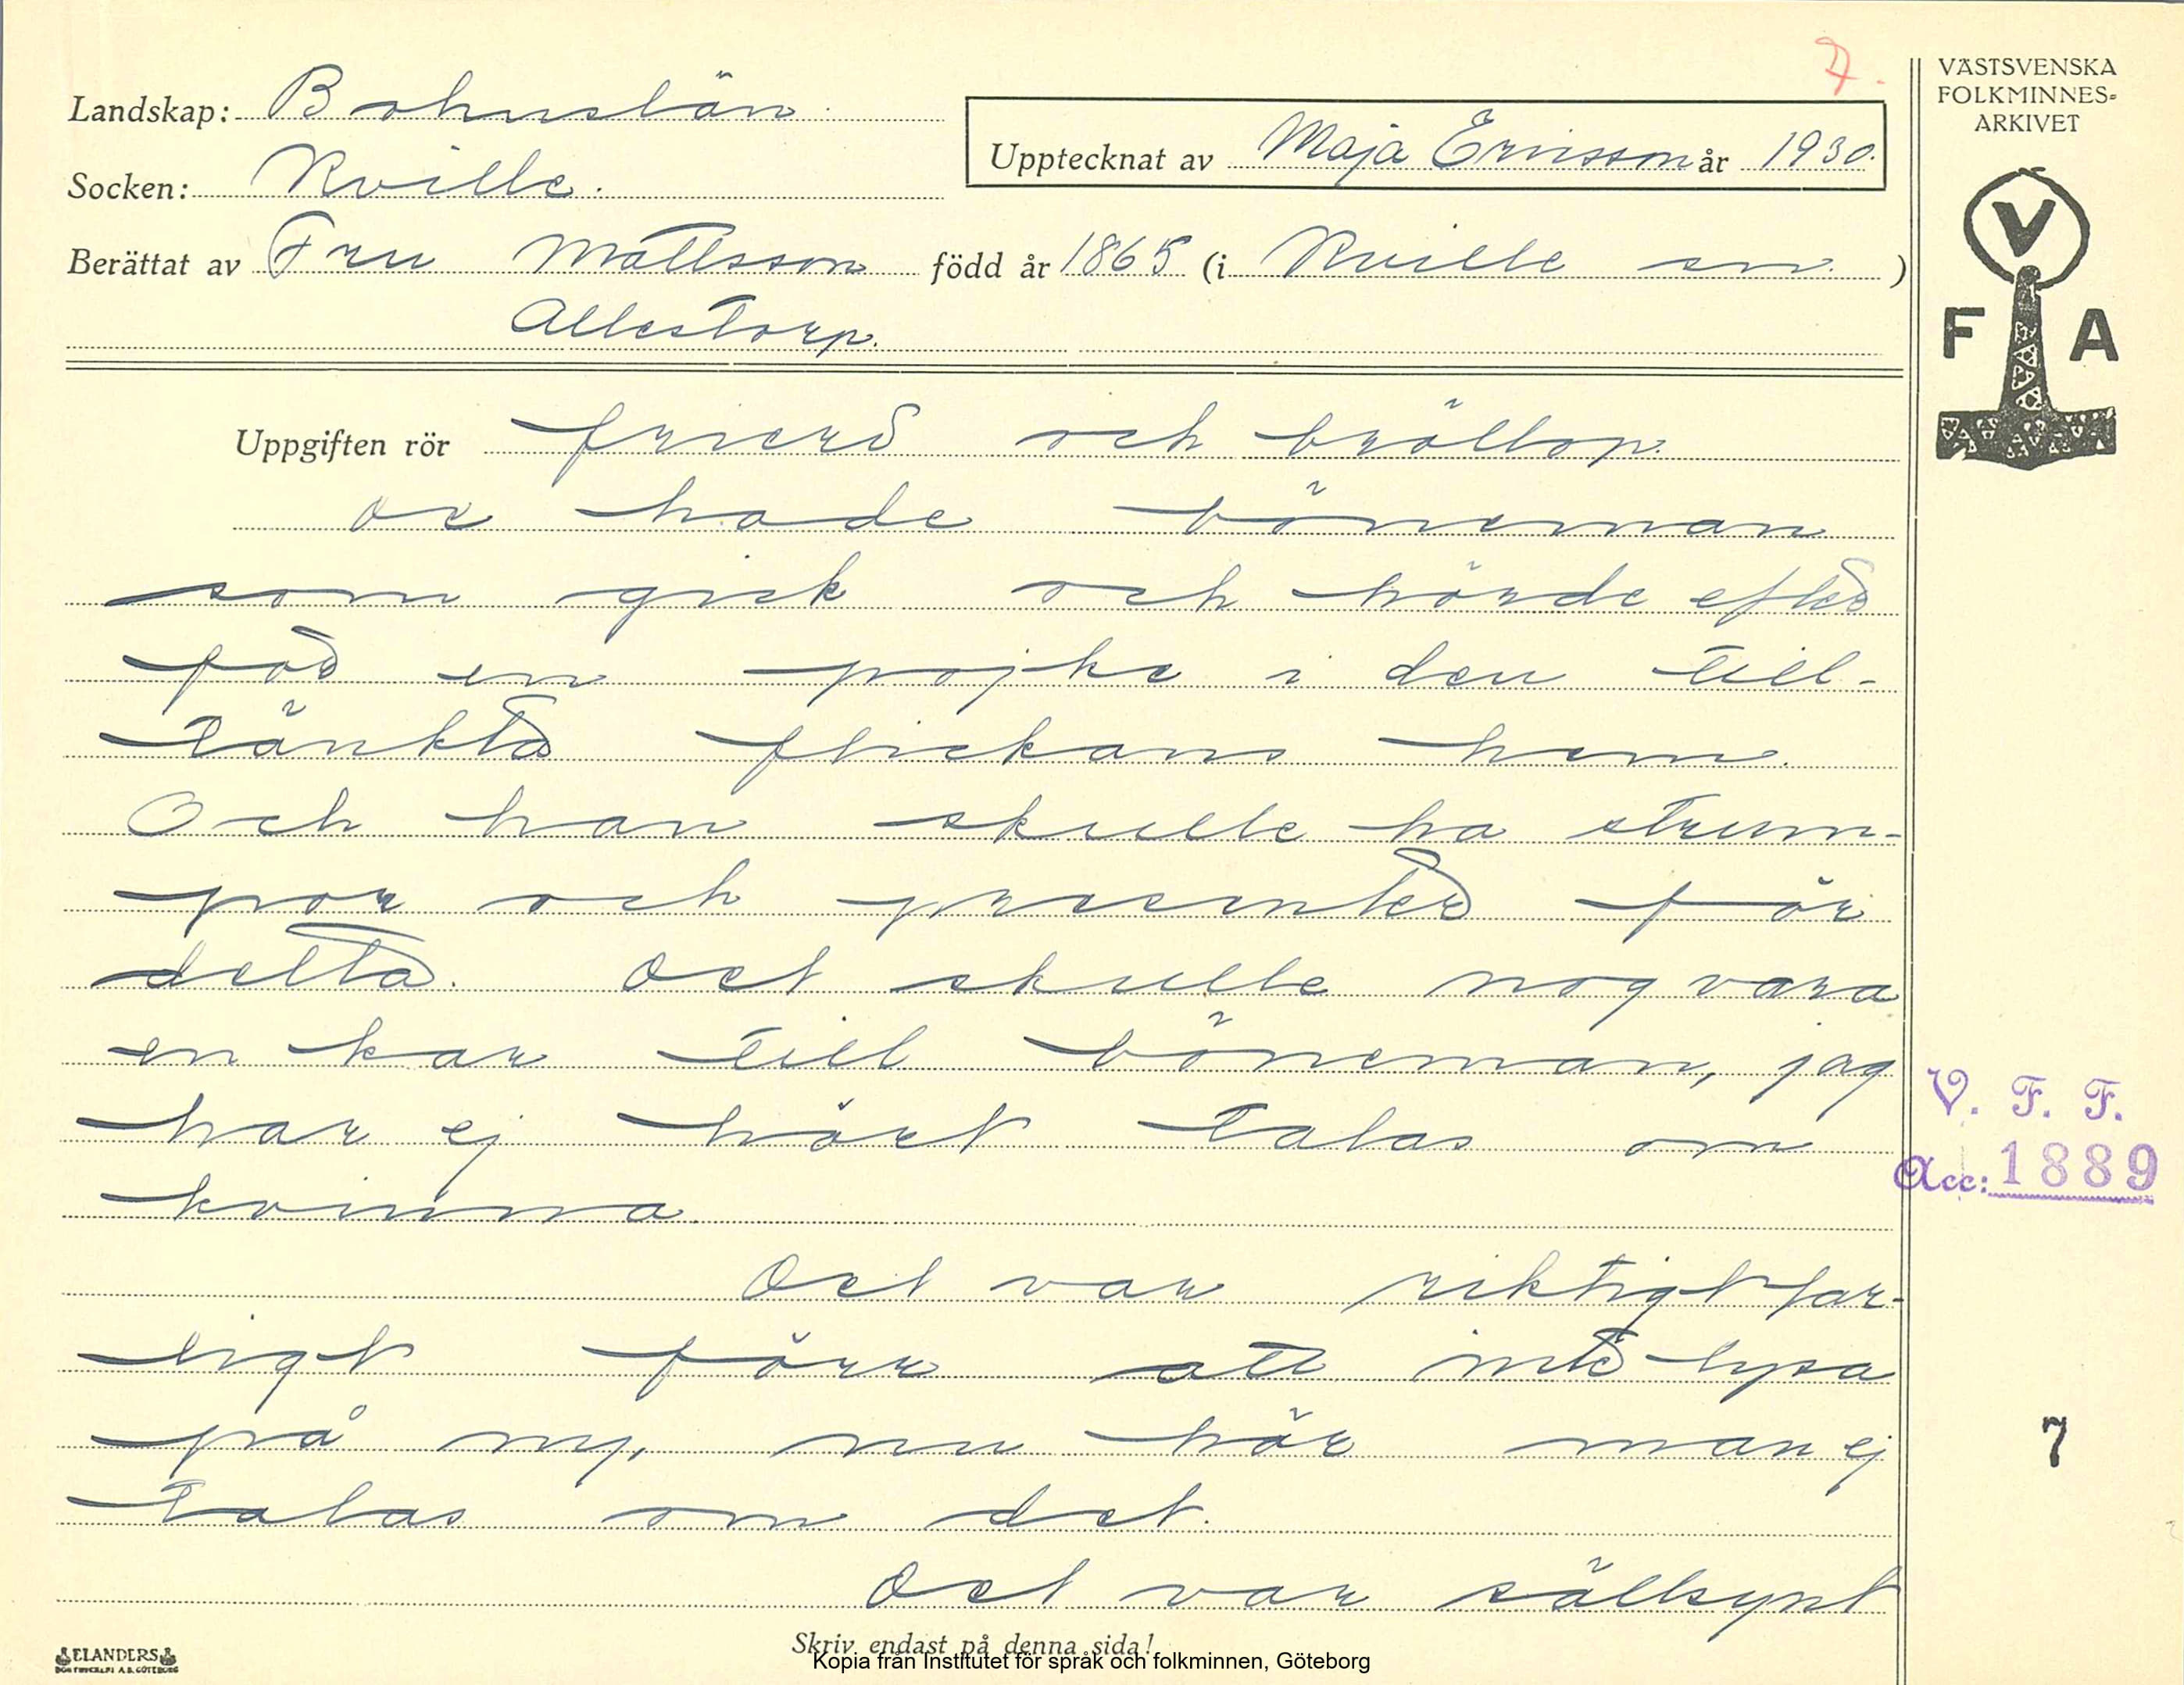 7.
VÄSTSVENSKA
FOLKMINNES=
ARKIVET
Landskap: Bohuslän
Upptecknat av Maja Ericsson år 1930.
Socken: Kville.
Berättat av Fru Mattsson född år 1865 (i Kville sn. )
Allestorp.
V
F A
Uppgiften rör frieri och bröllop.
De hade böneman
som gick och hörde efter
för en pojke i den till-
tänkta flickans hem.
Och han skulle ha strum-
por och presenter för
detta. Det skulle nog vara
en kar till böneman, jag
har ej hört talas om
kvinna.
V. F. F.
Acc: 1889
Det var riktigt far-
ligt förr att inte lysa
på ny, nu hör man ej
talas om det.
7
Det var sällsynt
Skriv endast på denna sida!
ELANDERS
BOKTRYCKERI A.B. GÖTEBORG
Kopia från Institutet för språk och folkminnen, Göteborg